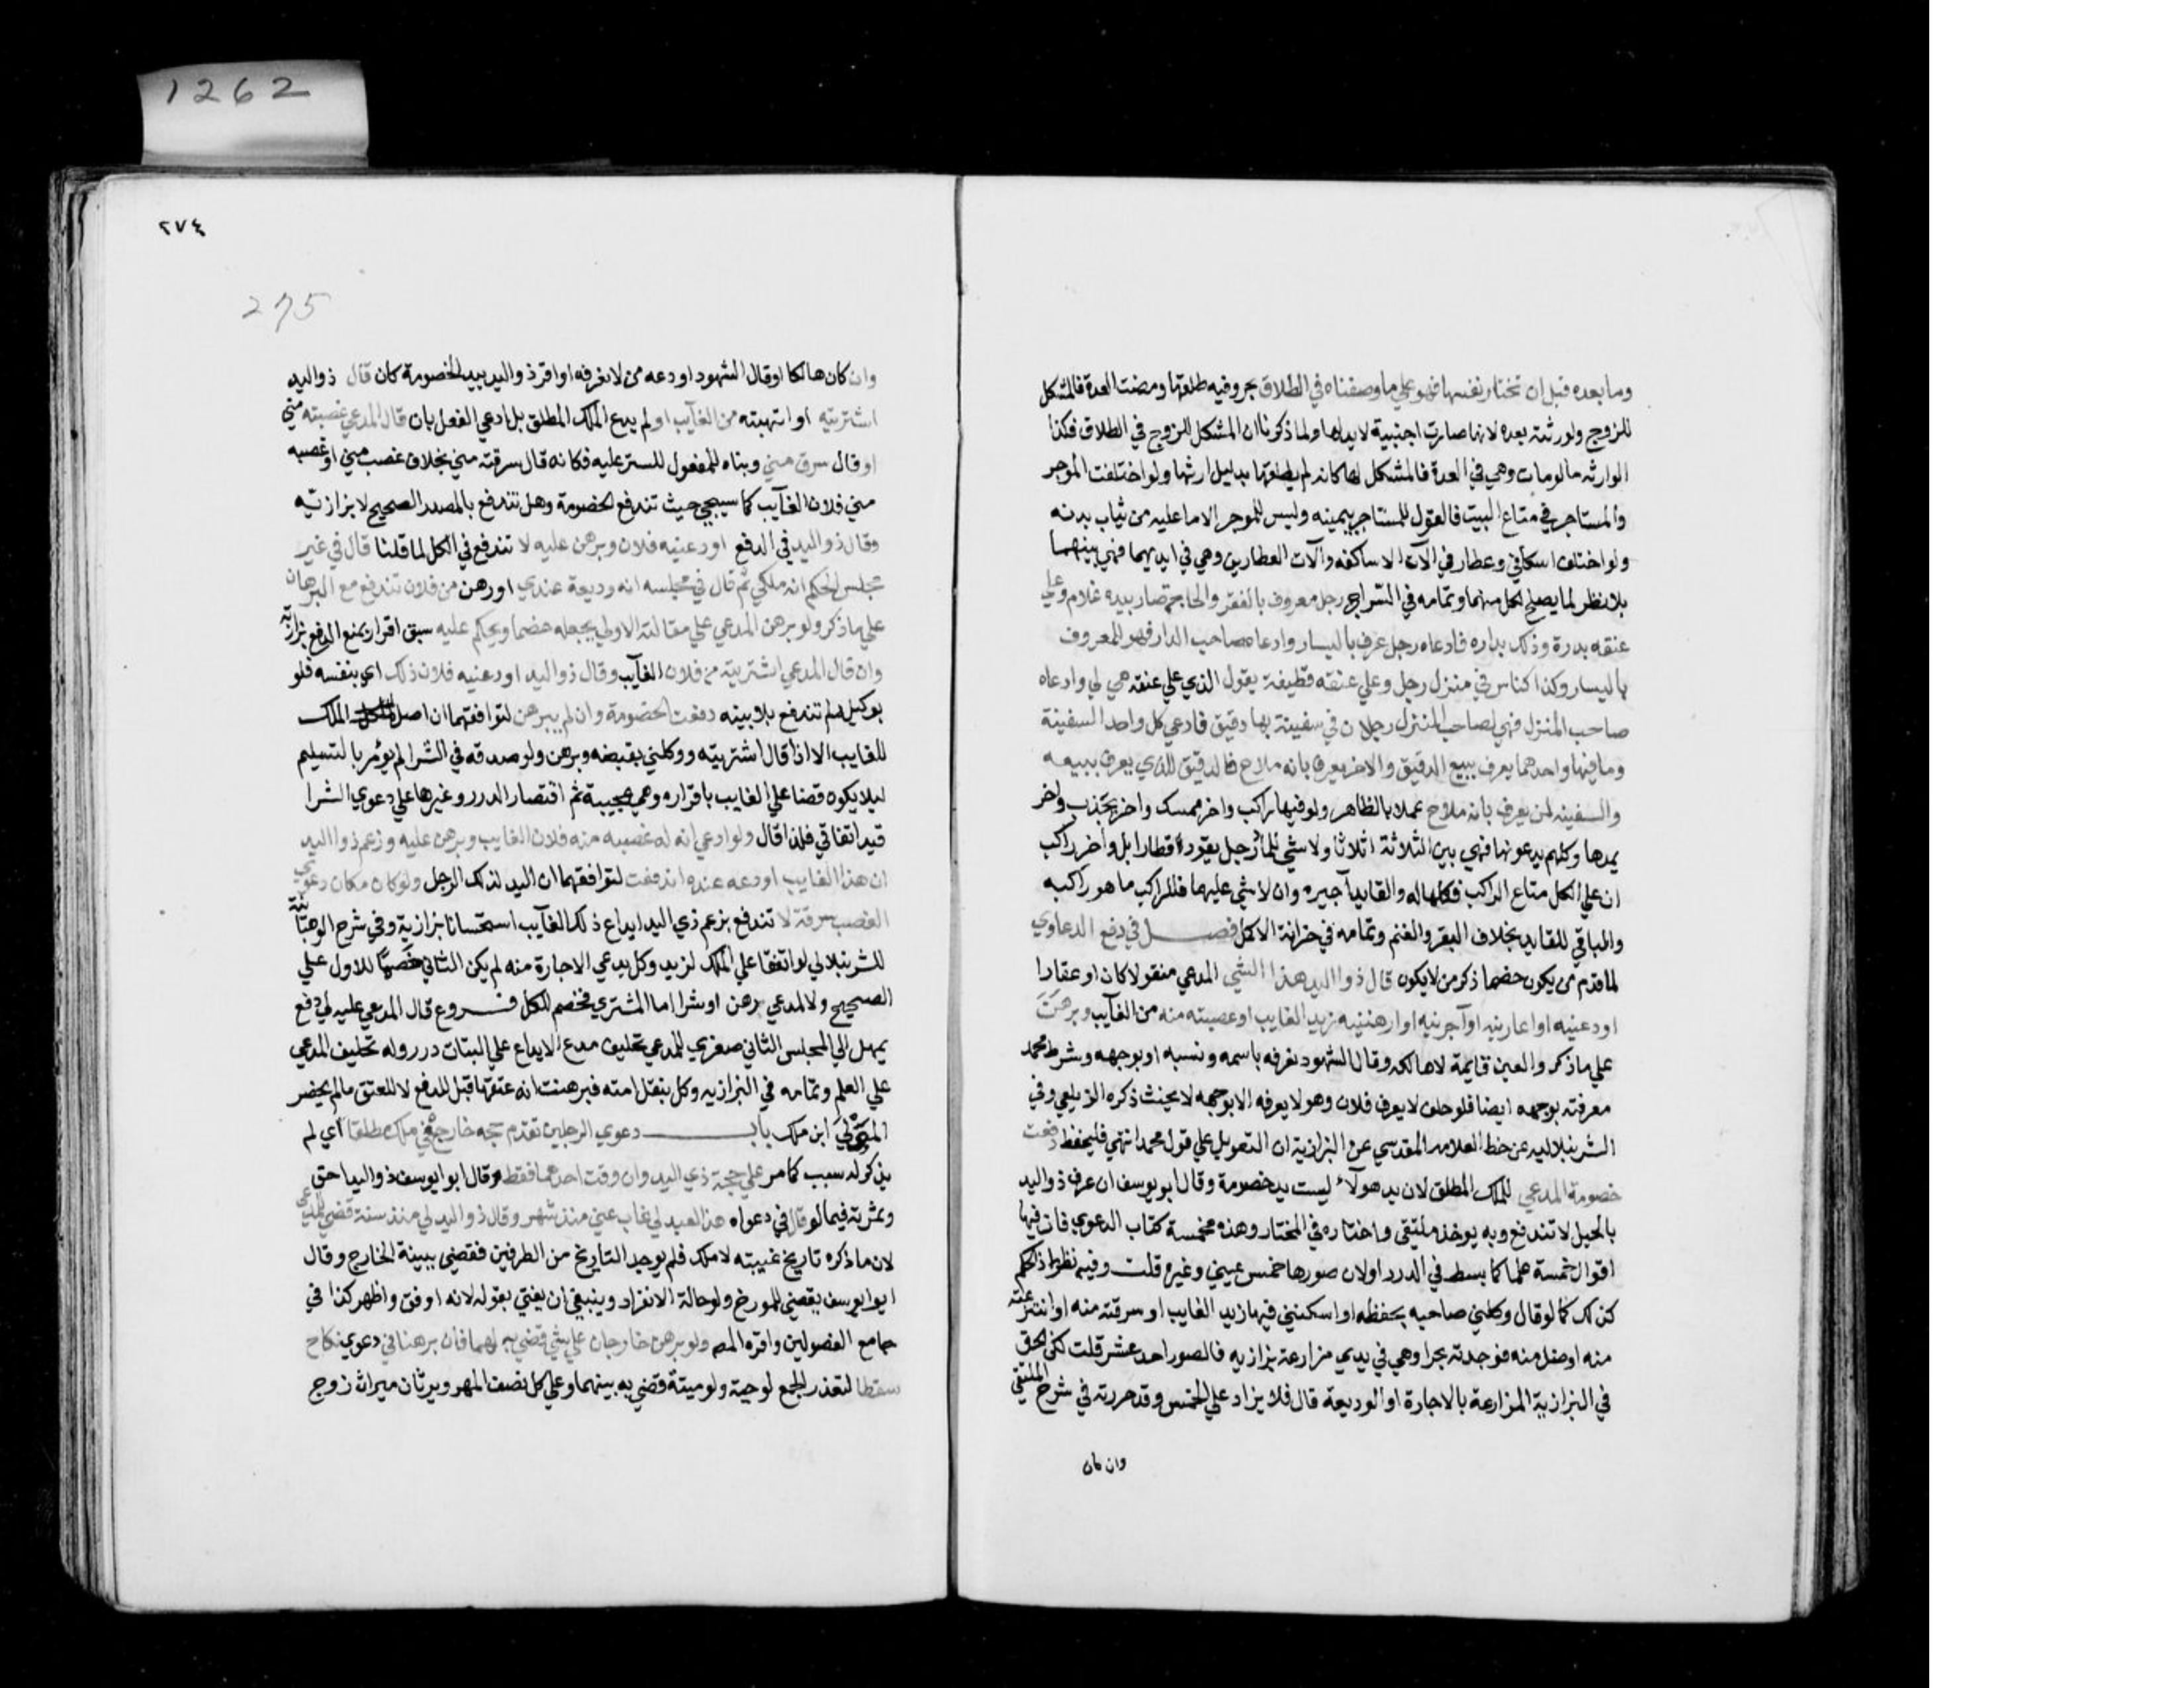 1262
وما بعده قبل ان تختار نفسها فهو علي ما وصفناه في الطلاق بحر وفيه طلقها ومضت العدة فالمشكل
للزوج ولورثته بعده لانها صارت اجنبية لا يد لها ولما ذكرنا ان المشكل للزوج في الطلاق فكذا
الوارثه ما لو مات وهي في العدة فالمشكل لها كانه لم يطلقها بدليل ارثها ولو اختلفت الموجر
والمستاجر في متاع البيت فالقول للمستاجر بيمينه وليس للموجر الا ما عليه من ثياب بدنه
ولو اختلف اسكافي وعطار في الآت الاساكفه وآلات العطارين وهي في ايديهما فهي بينهما
بلا نظر لما يصلح لكل منهما وتمامه في السراج رجل معروف بالفقر والحاجة صار بيده غلام وعلي
عنقه بدرة وذلك بداره فادعاه رجل عرف باليسار وادعاه صاحب الدار فهو للمعروف
باليسار وكذا كناس في منزل رجل وعلي عنقه قطيفة يقول الذي علي عنقه هي لي وادعاه
صاحب المنزل فهي لصاحب المنزل رجلان في سفينة بها دقيق فادعي كل واحد السفينة
وما فيها واحدهما يعرف ببيع الدقيق والاخر يعرف بانه ملاح فالدقيق للذي يعرف ببيعه
والسفينه لمن يعرف بانه ملاح عملا بالظاهر ولو فيها راكب واخر ممسك واخر يجذب واخر
يمدها وكلهم يدعونها فهي بين الثلاثة اثلاثا ولا شي للمار رجل يقود قطار ابل واخر راكب
ان علي الكل متاع الراكب فكلها له والقايد اجيره وان لا شي عليها فللراكب ما هو راكبه
والباقي للقايد بخلاف البقر والغنم وتمامه في خزانة الاكمل فصل في دفع الدعاوي
لما قدم من يكون خصما ذكر من لا يكون قال ذو اليد هذا الشي المدعي منقولا كان او عقارا
اودعنيه او اعارنيه او آجرنيه او ارهننيه زيد الغايب او غصبته منه من الغآيب وبرهن
علي ما ذكر والعين قايمة لا هالكه وقال الشهود نعرفه باسمه ونسبه او بوجهه وشرط محمد
معرفته بوجهه ايضا فلو حلف لا يعرف فلان وهو لا يعرفه الا بوجهه لا يحنث ذكره الزيلعي وفي
الشرنبلاليه عن خط العلامه المقدسي عن البزازية ان التعويل علي قول محمد انتهي فليحفظ دفعت
خصومة المدعي للملك المطلق لان يد هولآء ليست يد خصومة وقال ابو يوسف ان عرف ذو اليد
بالحيل لا تندفع وبه يوخذ ملتقي واختاره في المختار وهذه مخمسة كتاب الدعوي فان فيها
اقوال خمسة علما كما بسط في الدرر او لان صورها خمس عيني وغيره قلت وفيه نظر اذ الحكم
كذلك كما لو قال وكلني صاحبه بحفظه او اسكنني فيها زيد الغايب او سرقته منه او انتزعته
منه او ضل منه فوجدته بحر او هي في يدي مزارعة بزازيه فالصور احد عشر قلت لكن الحق
في البزازية المزارعة بالاجارة او الوديعة قال فلا يزاد علي الخمس وقد حررته في شرح الملتقي
وان كان
٢٧٤
275
وان كان هالكا او قال الشهود اودعه من لا نعرفه او اقر ذو اليد بيد الخصومة كان قال ذو اليد
اشتريته او اتهبته من الغآيب او لم يدع الملك المطلق بل ادعي الفعل بان قال المدعي غصبته مني
او قال سرق مني وبناه للمفعول للستر عليه فكانه قال سرقته مني بخلاف غصب مني او غصبه
مني فلان الغآيب كما سيجي حيث تندفع الخصومة وهل تندفع بالمصدر الصحيح لا بزازيه
وقال ذو اليد في الدفع اودعنيه فلان وبرهن عليه لا تندفع في الكل لما قلنا قال في غير
مجلس الحكم انه ملكي ثم قال في مجلسه انه وديعة عندي او رهن من فلان تندفع مع البرهان
علي ما ذكر ولو برهن المدعي علي مقالته الاولي يجعله خصما ويحكم عليه سبق اقرار يمنع الدفع بزازية
وان قال المدعي اشتريته من فلان الغآيب وقال ذو اليد اودعنيه فلان ذلك اي بنفسه فلو
بوكيله لم تندفع بلا بينه دفعت الخصومة وان لم يبرهن لتوافقهما ان اصل الملك
للغايب الا اذا قال اشتريته ووكلني بقبضه وبرهن ولو صدقه في الشرا لم يؤمر بالتسليم
ليلا يكون قضا علي الغايب باقراره وهي عجيبة ثم اقتصار الدرر وغيرها علي دعوي الشرا
قيد اتفاقي فلذا قال ولو ادعي انه له غصبه منه فلان الغايب وبرهن عليه وزعم ذو اليد
ان هذا الغايب اودعه عنده اندفعت لتوافقهما ان اليد لذلك الرجل ولو كان مكان دعوي
الغصب سرقة لا تندفع بزعم ذي اليد ايداع ذلك الغآيب استحسانا بزازية وفي شرح الوهبانية
للشرنبلالي لو اتفقا علي الملك لزيد وكل يدعي الاجارة منه لم يكن الثاني خصما للاول علي
الصحيح ولا لمدعي رهن او شرا اما المشتري فخصم للكل فروع قال المدعي عليه لي دفع
يمهل الي المجلس الثاني صغري للمدعي تحليف مدع الايداع علي البتات درر وله تحليف المدعي
علي العلم وتمامه في البزازيه وكل بنقل امته فبرهنت انه عتقها قبل للدفع لا للعتق ما لم يحضر
المولي ابن ملك باب دعوي الرجلين تقدم حجه خارج في ملك مطلق اي لم
يذكر له سبب كما مر علي حجة ذي اليد وان وقت احدهما فقط وقال ابو يوسف ذو اليد احق
وثمرته فيما لو قال في دعواه هذا العبد لي غاب عني منذ شهر وقال ذو اليد لي منذ سنة قضي للمدعي
لان ما ذكره تاريخ غيبته لا ملك فلم يوجد التاريخ من الطرفين فقضي ببينة الخارج وقال
ابو يوسف يقضي للمورخ ولو حالة الانفراد وينبغي ان يفتي بقوله لانه اوفق واظهر كذا في
جامع الفصولين واقره المص ولو برهن خارجان علي شي قضي به لهما فان برهنا في دعوي نكاح
سقطا لتعذر الجمع لو حية ولو ميتة قضي به بينهما وعلي كل نصف المهر ويرثان ميراث زوج